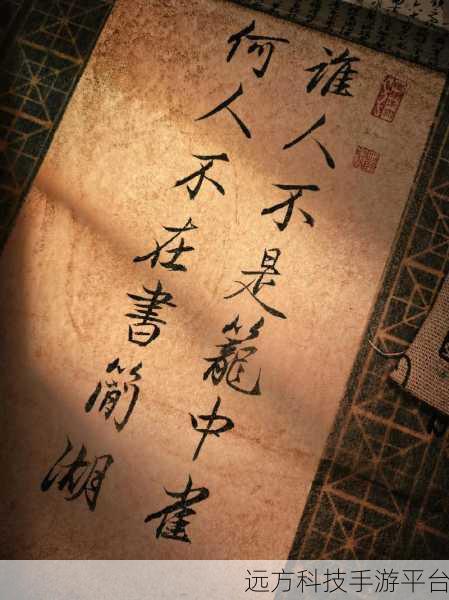 誰人不是籠中雀
何人不在書簡湖
远方科技手游平台